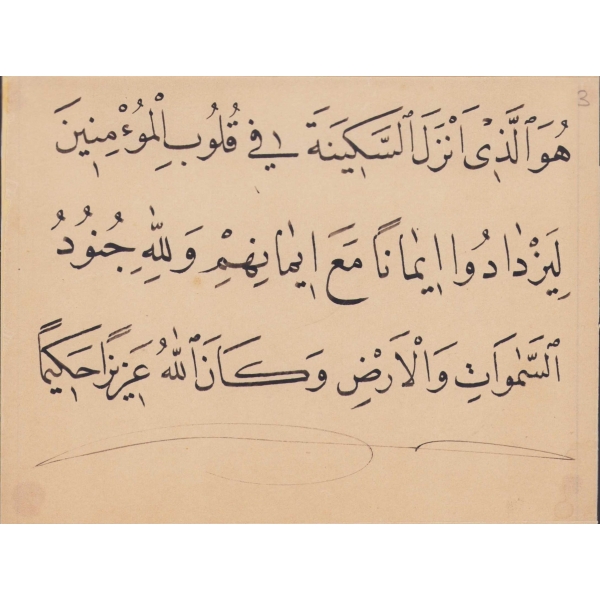 3
هُوَ ٱلَّذِىٓ اَنْزَلَ ٱلسَّكِينَةَ فِى قُلُوبِ ٱلْمُؤْمِنِينَ
لِيَزْدَادُوا اِيمَانًا مَعَ اِيمَانِهِمْ وَلِلّٰهِ جُنُودُ
ٱلسَّمٰوَاتِ وَالْاَرْضِ وَكَانَ ٱللّٰهُ عَزِيزًا حَكِيمًا